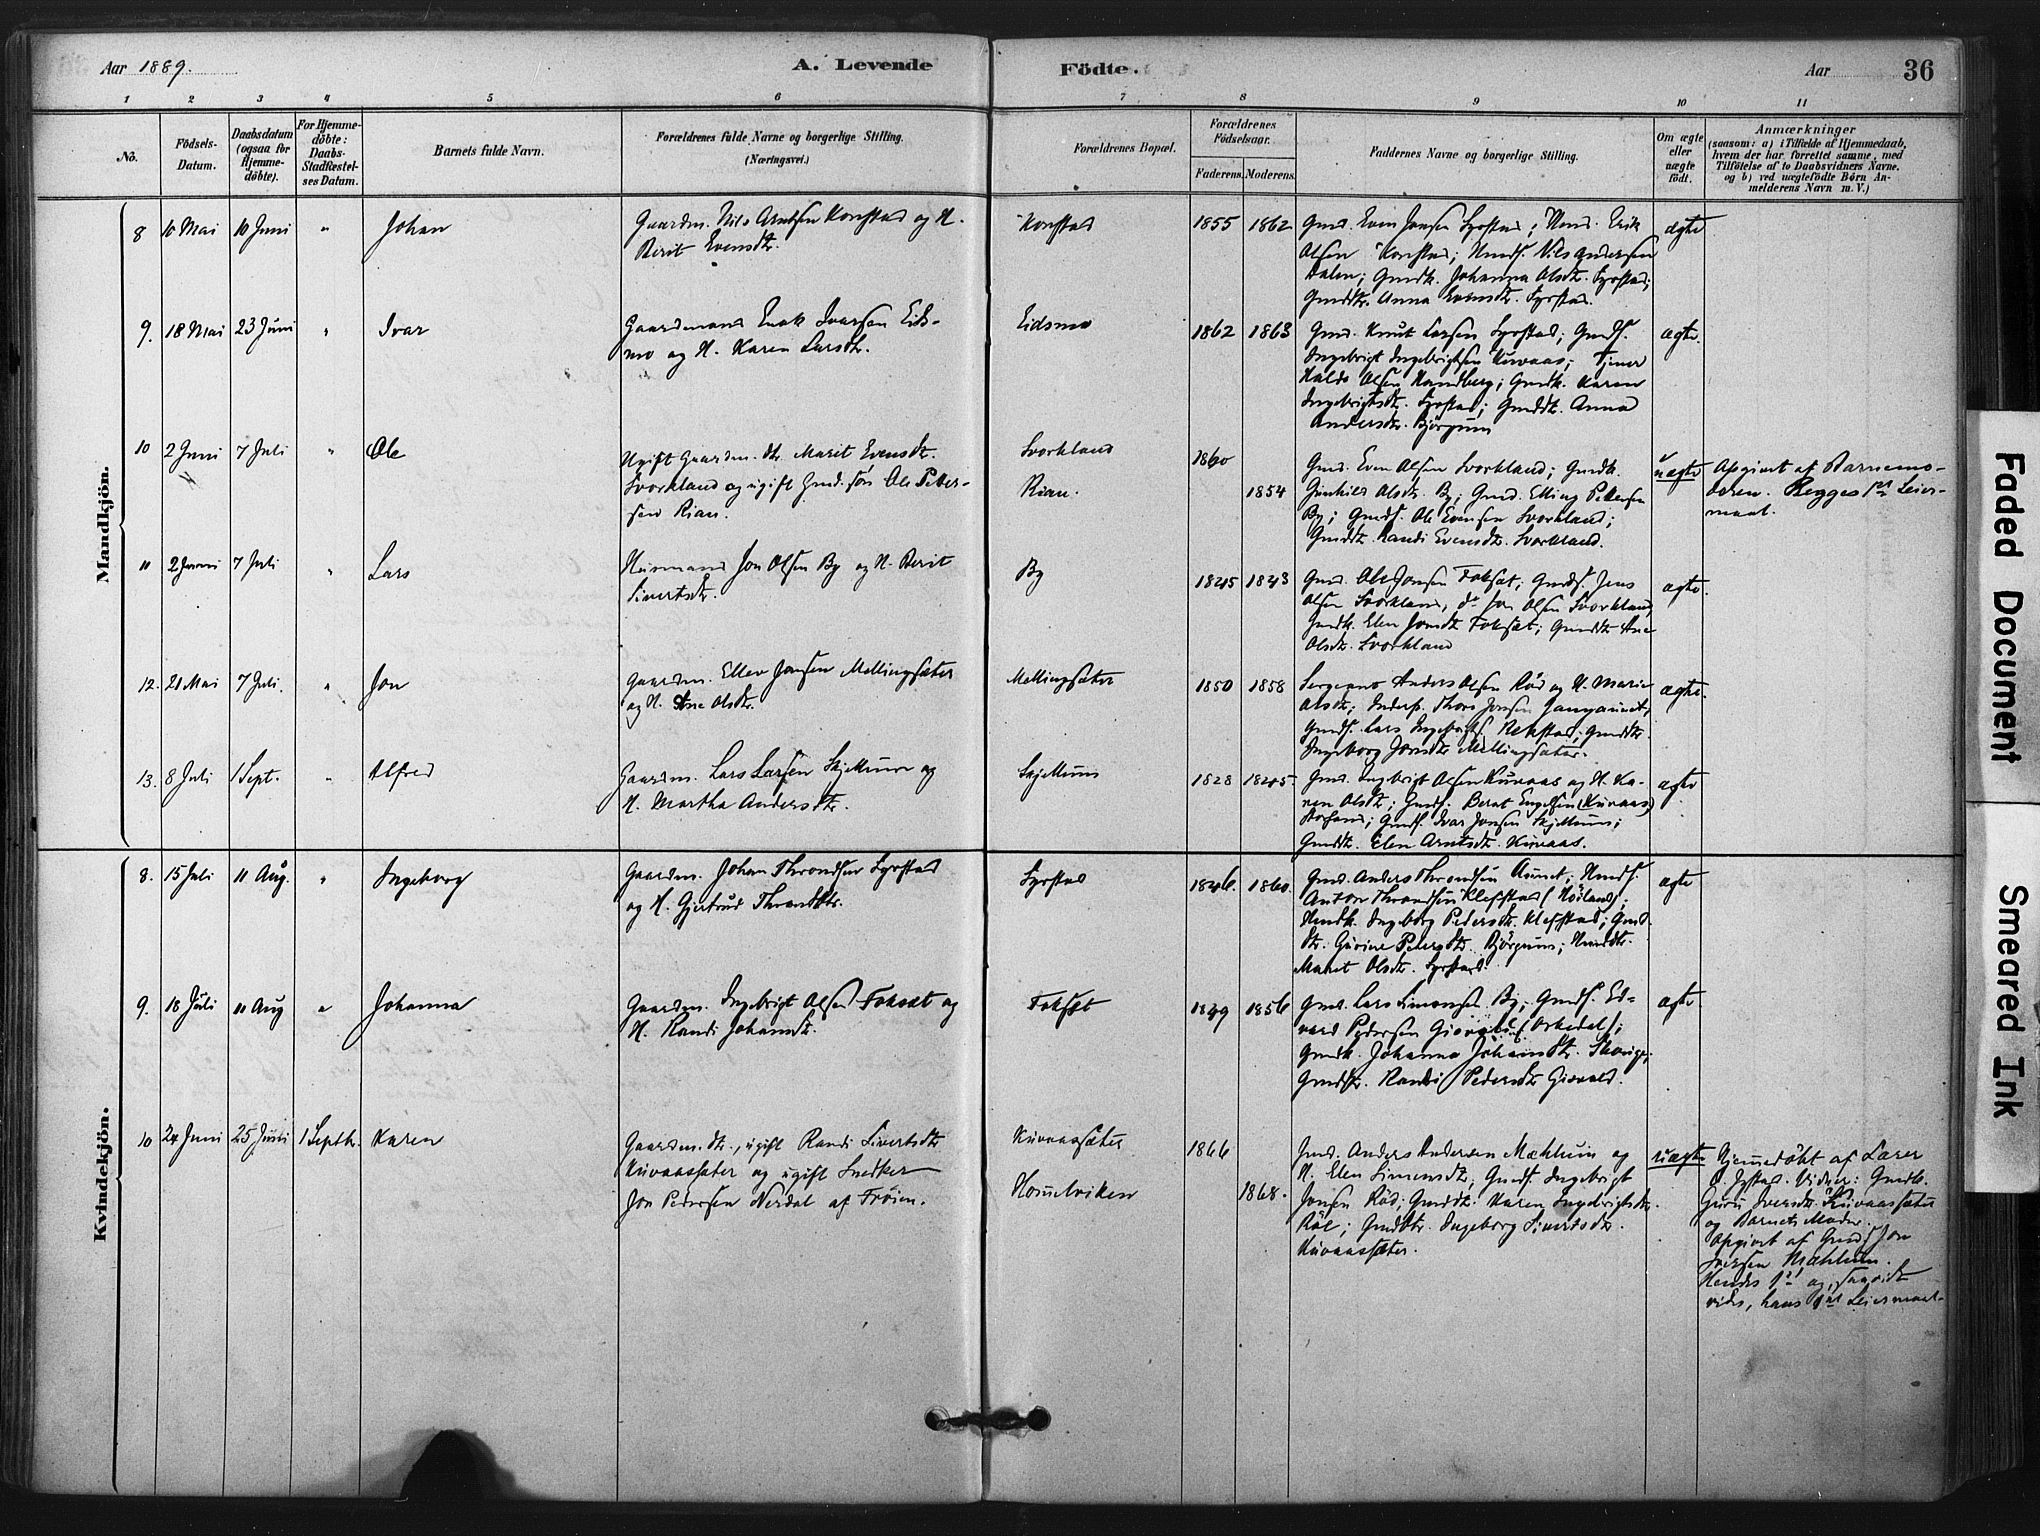 Aar 1889.
A. Levende
Födte.
Aar
36
1 2 3 4 5 6 7 8 9 10 11
No.
Födsels-
Datum.
Daabsdatum
(ogsaa for
Hjemme-
döbte).
For Hjemme-
döbte:
Daabs-
Stadfæstel-
ses Datum.
Barnets fulde Navn.
Forældrenes fulde Navne og borgerlige Stilling.
(Næringsvei.)
Forældrenes Bopæl.
Forældrenes
Födselsaar.
Faderens. Moderens.
Faddernes Navne og borgerlige Stilling.
Om ægte
eller
uægte
født.
Anmærkninger
(saasom: a) i Tilfælde af Hjemmedaab,
hvem der har forrettet samme, med
Tilföielse af to Daabsvidners Navne.
og b) ved uægtefödte Börn An-
melderens Navn m. V.)
Mandkjön.
8 10 Mai 10 Juni " Johan
Gaardm. Nils Arntsen Konstad og H.
Berit Evensdtr.
Konstad
1855 1862
Gmd. Even Jonsen Syrstad; Hmd. Erik
Olsen Konstad; Hmds. Nils Andersen
Dalen; Gmdk. Johanna Olsdtr. Syrstad;
Gmddtr. Anna Evensdtr. Syrstad.
ægte
9. 18 Mai 23 Juni " Ivar
Gaardmand Enok Ivarsen Eids-
mo og H. Karen Larsdtr.
Eidsmo
1862 1863
Gmd. Knut Larsen Syrstad; Gmds.
Ingebrigt Ingebrigtsen Kuvaas; Tjener
Halds Olsen Handberg; Gmdk. Karen
Ingebrigtsdtr. Syrstad; Gmddtr. Anna
Andersdtr. Bjørgum
ægte.
10 2 Juni 7 Juli " Ole
Ugift Gaardm. dtr. Marit Evensdtr.
Svorkland og ugift Gmd. søn Ole Peter-
sen Rian.
Svorkland
Rian.
1860
1854
Gmd. Even Olsen Svorkland; Gmdk.
Gunhild Olsdtr. By; Gmd. Elling Pettersen
By; Gmds. Ole Evensen Svorkland;
Gmddtr. Randi Evensdtr. Svorkland.
uægte
Opgivet af Barnemo-
deren. Begges 1ste Leier-
maal.
11 2 Juni 7 Juli " Lars
Huusmand Jon Olsen By og H. Berit
Sivertsdtr.
By
1845 1843
Gmd. Ole Jonsen Foksæt; Gmds. Jens
Olsen Svorkland, do Jon Olsen Svorkland
Gmdk. Elen Jonsdtr Foksæt; Gmddtr Ane
Olsdtr. Svorkland
ægte.
12. 21 Mai 7 Juli. " Jon
Gaardm. Ellev Jonsen Mellingsæter
og H. Ane Olsdtr.
Mellingsæter
1850 1858
Sergeant Anders Olsen Röd og H. Marie
Olsdtr; Inderst. Thore Jonsen Gangaunet,
Gmds. Lars Ingebrigts. Rekstad; Gmddtr.
Ingeborg Jonsdtr Mellingsæter.
ægte.
13. 8 Juli 1 Sept. " Alfred
Gaardm. Lars Larsen Skjellum og
H. Martha Andersdtr.
Skjellum
1828 1845.
Gmd. Ingebrigt Olsen Kuvaas og H. Ka-
ren Olsdtr; Gmds. Berat Engelsen (Kuvaas)
Gmds. Ivar Jonsen Skjellum;
Gmddtr. Elen Arntsdtr. Kuvaas.
ægte
Kvindekjön.
8. 15 Juli 11 Aug. " Ingeborg
Gaardm. Johan Throndsen Syrstad
og H. Gjertrud Throndsdtr.
Syrstad
1846. 1860.
Gmd. Anders Throndsen Aunet; Hmds.
Anton Throndsen Klefstad (Höiland);
Hmdk. Ingeborg Pedersdtr. Klefstad; Gmd.
dtr. Gurine Petersdtr. Bjørgum; Hmddtr.
Marit Olsdtr. Syrstad.
ægte
9. 18 Juli 11 Aug " Johanna
Gaardm. Ingebrigt Olsen Foksæt og
H. Randi Johansdtr.
Foksæt
1849 1856
Gmd. Lars Simonsen By; Gmds. Ed-
vard Pedersen Gisvold (Orkedal);
Gmdk. Johanna Johansdtr.
Gmddtr. Randi Pedersdtr Gisvold.
ægte
10 24 Juni 25 Juni 1 Septbr. Karen
Gaardm. dtr., ugift Randi Sivertsdtr
Kuvaassæter og ugift Snedker
Jon Pedersen Nerdal af Frøien.
Kuvaassæter
Hommelviken
1866
1868.
Gmd. Anders Andersen Mæhlum og
H. Elen Simensdtr; Gmds. Ingebrigt
Jonsen Röd; Gmddtr. Karen Ingebrigtsdtr.
Röe; Gmddtr. Ingeborg Sivertsdtr.
Kuvaassæter.
uægte
Hjemmedöbt af Lærer
Vidner: Gmdk.
Guru Iversdtr. Kuvaassæter
og Barnets Moder.
Opgivet af Gmds. Jon
Iversen Mæhlum.
Hendes 1ste og, saavidt
vides, hans 1ste Leiermaal.
Faded Document
Smeared Ink